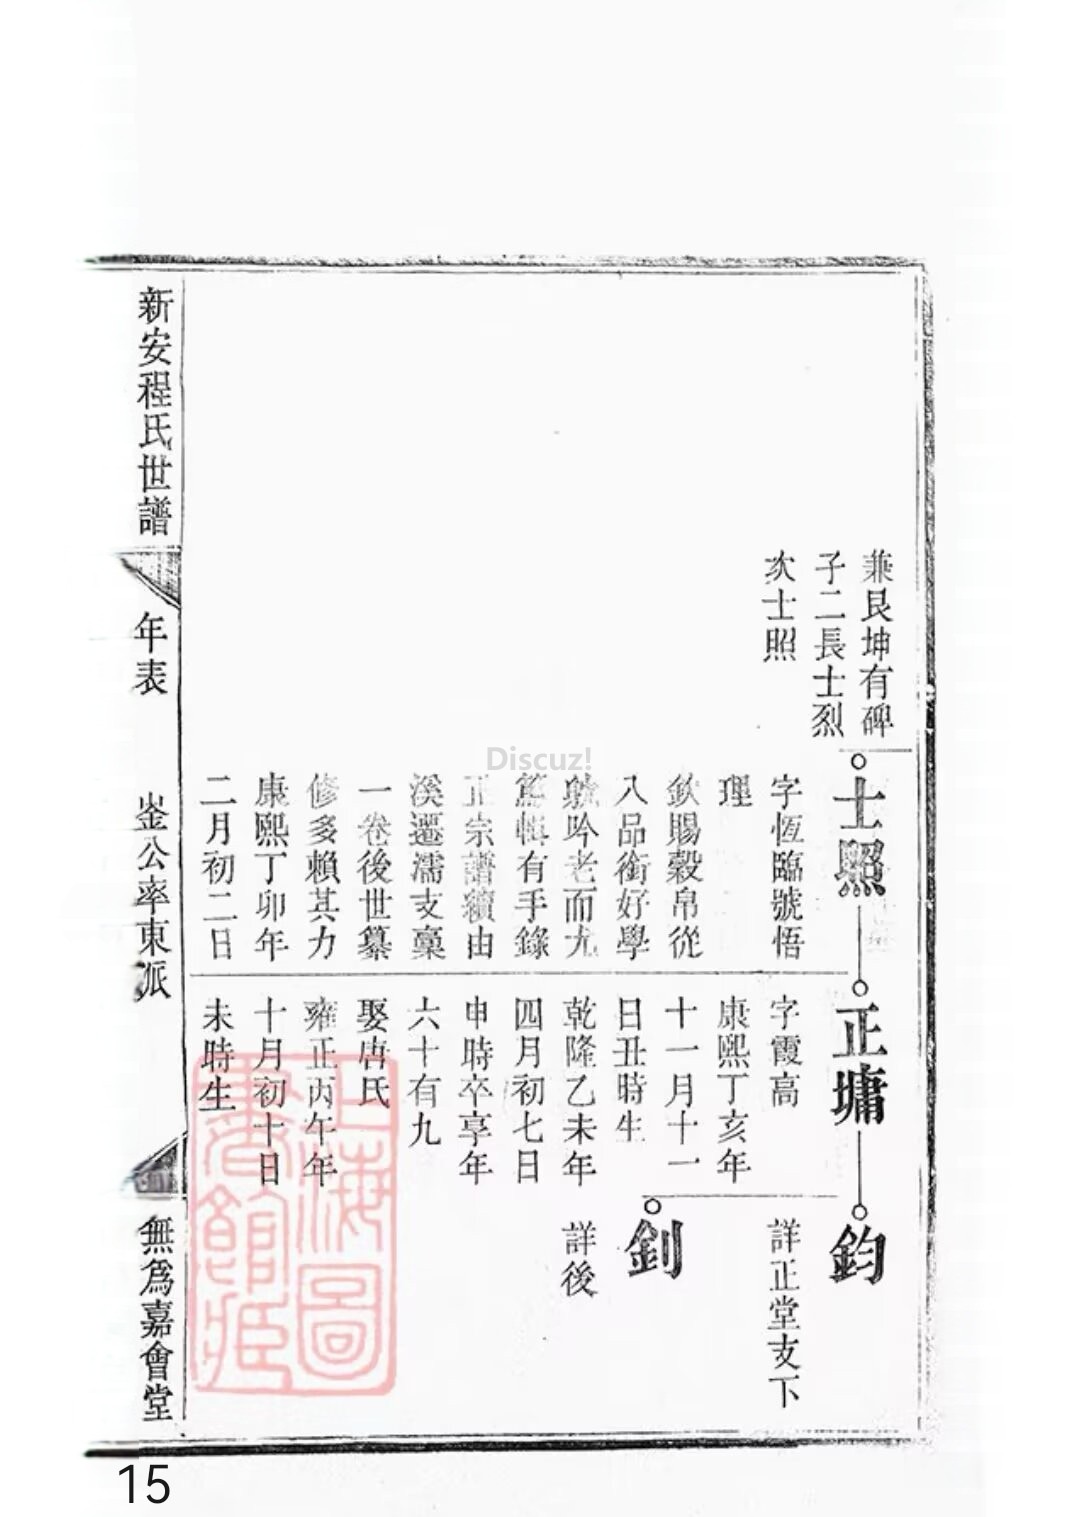 兼艮坤有碑
子二長士烈
次士照
士照
字恆臨號悟
理
欽賜穀帛從
八品銜好學
躭吟老而尤
篤輯有手錄
正宗譜續由
溪遷濡支稾
一卷後世纂
修多賴其力
康熙丁卯年
二月初二日
正墉
字霞高
康熙丁亥年
十一月十一
日丑時生
乾隆乙未年
四月初七日
申時卒享年
六十有九
娶唐氏
雍正丙午年
十月初十日
未時生
鈞
詳正堂支下
釗
詳後
新安程氏世譜
年表
崟公率東派
無爲嘉會堂
上海圖
書館藏
Discuz!
15